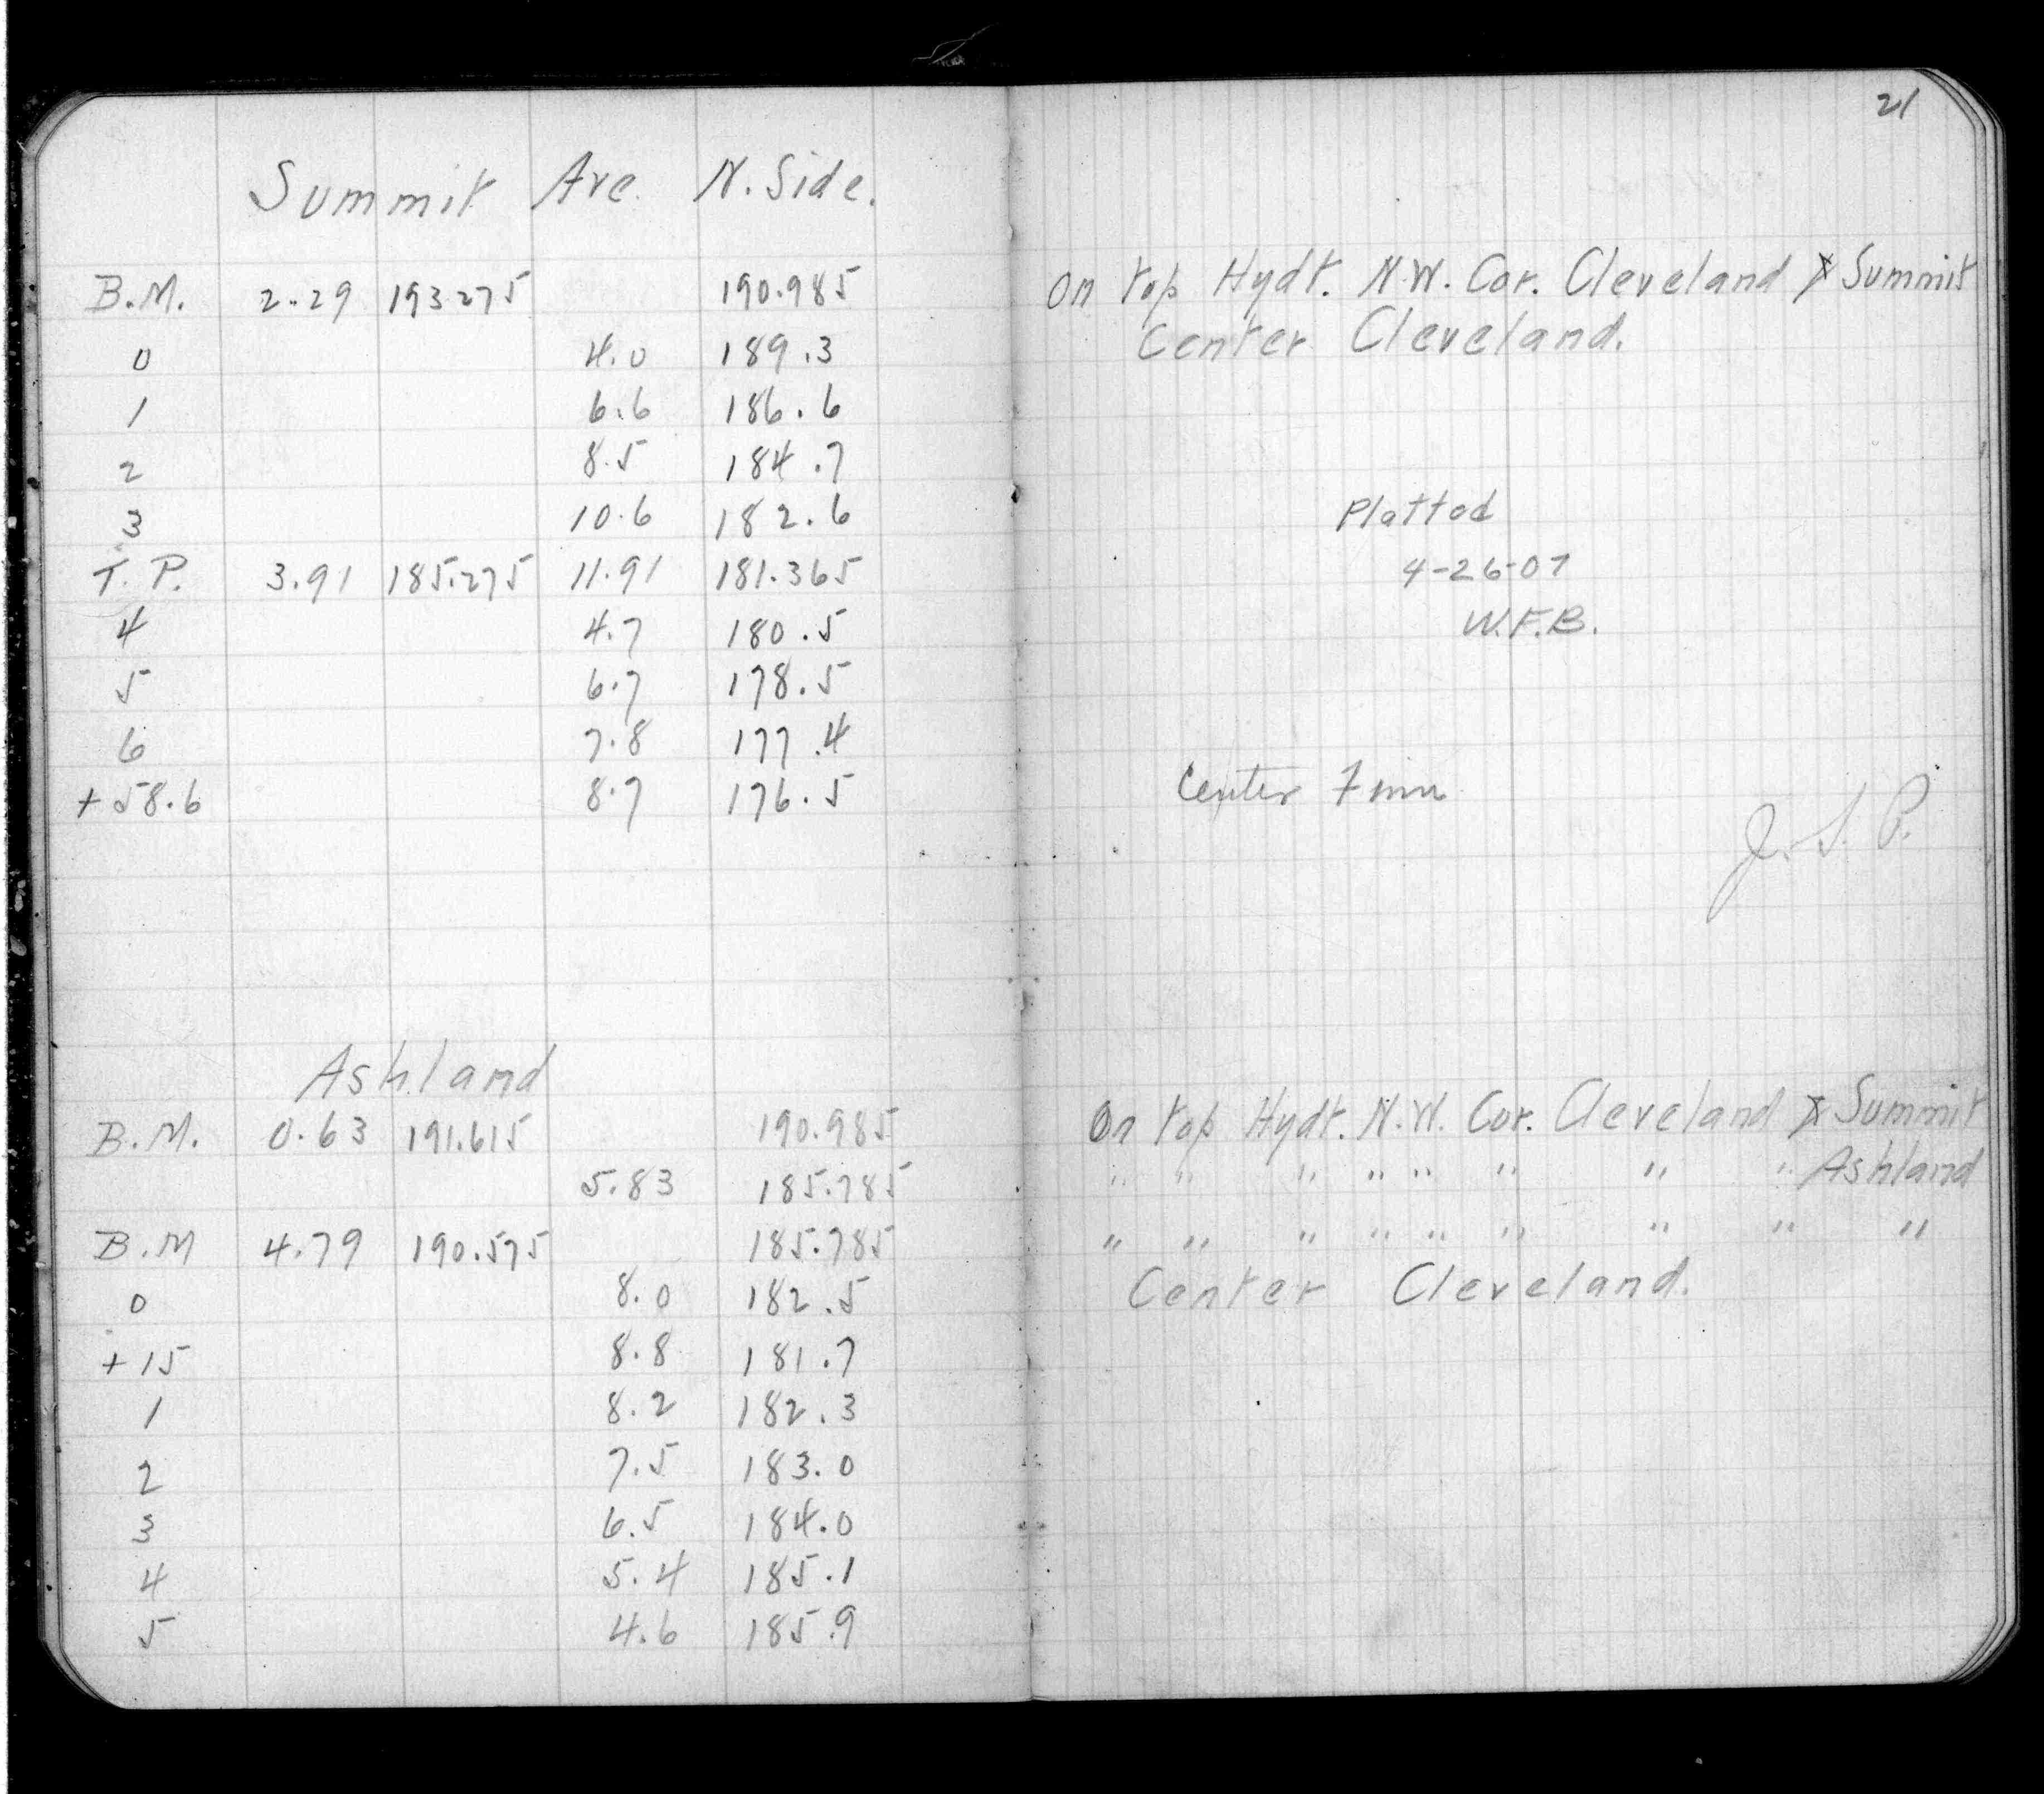 21
Summit Ave. N. Side.
B.M. 2.29 193.275 190.985 On top Hydt. N.W. Cor. Cleveland & Summit
0 4.0 189.3 Center Cleveland.
1 6.6 186.6
2 8.5 184.7
3 10.6 182.6 Platted
T.P. 3.91 185.275 11.91 181.365 4-26-07
4 4.7 180.5 W.F.B.
5 6.7 178.5
6 7.8 177.4
+58.6 8.7 176.5 Center
J. S. P.
Ashland
B.M. 0.63 191.615 190.985 On top Hydt. N.W. Cor. Cleveland & Summit
5.83 185.785 " " " " " " " " Ashland
B.M 4.79 190.575 185.785 " " " " " " " " "
0 8.0 182.5 Center Cleveland.
+15 8.8 181.7
1 8.2 182.3
2 7.5 183.0
3 6.5 184.0
4 5.4 185.1
5 4.6 185.9